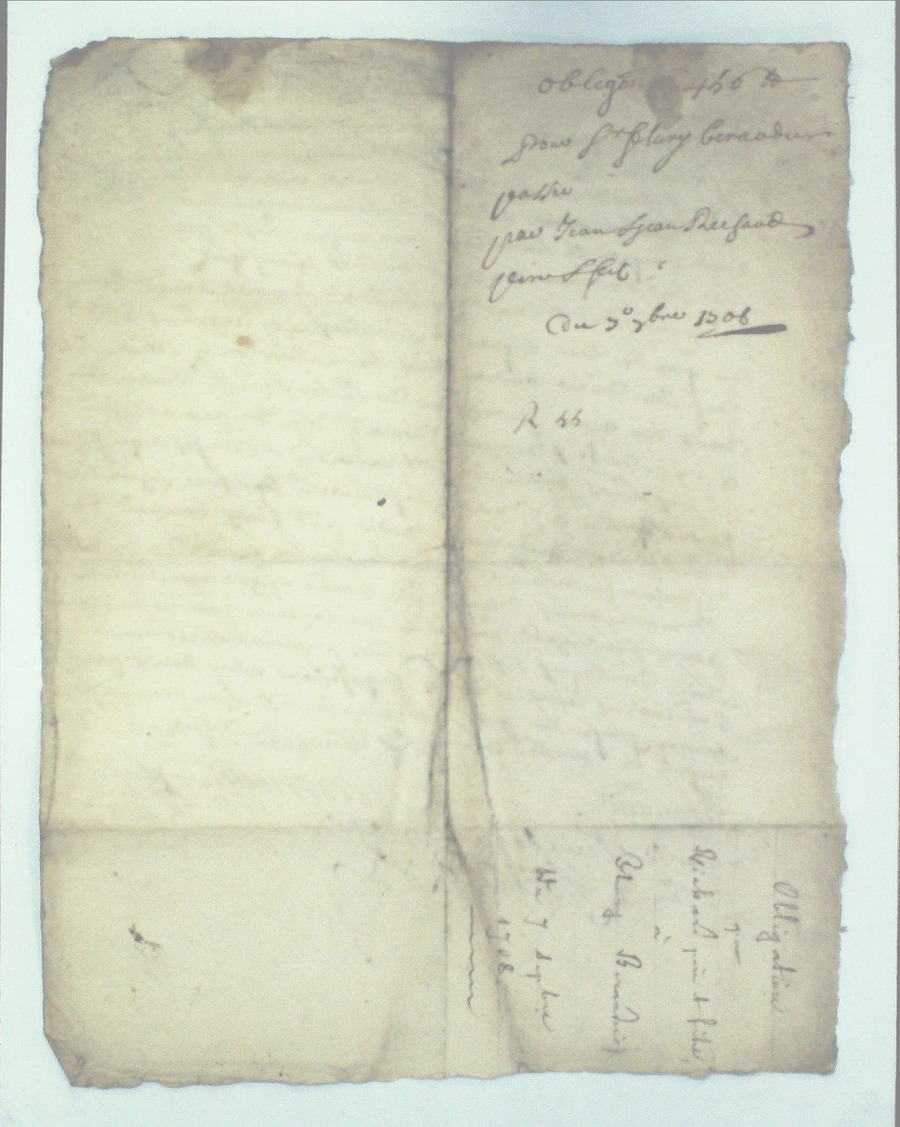 obligõn 456 ₶
pour Sr flury beraudier
passée
par Jean & Jean Richard
pere & fils
du 7e 7bre 1708
R 55
Obligation
pour
Richard père & fils,
à
Fleury Beraudier
Du 7 Septbre
1708